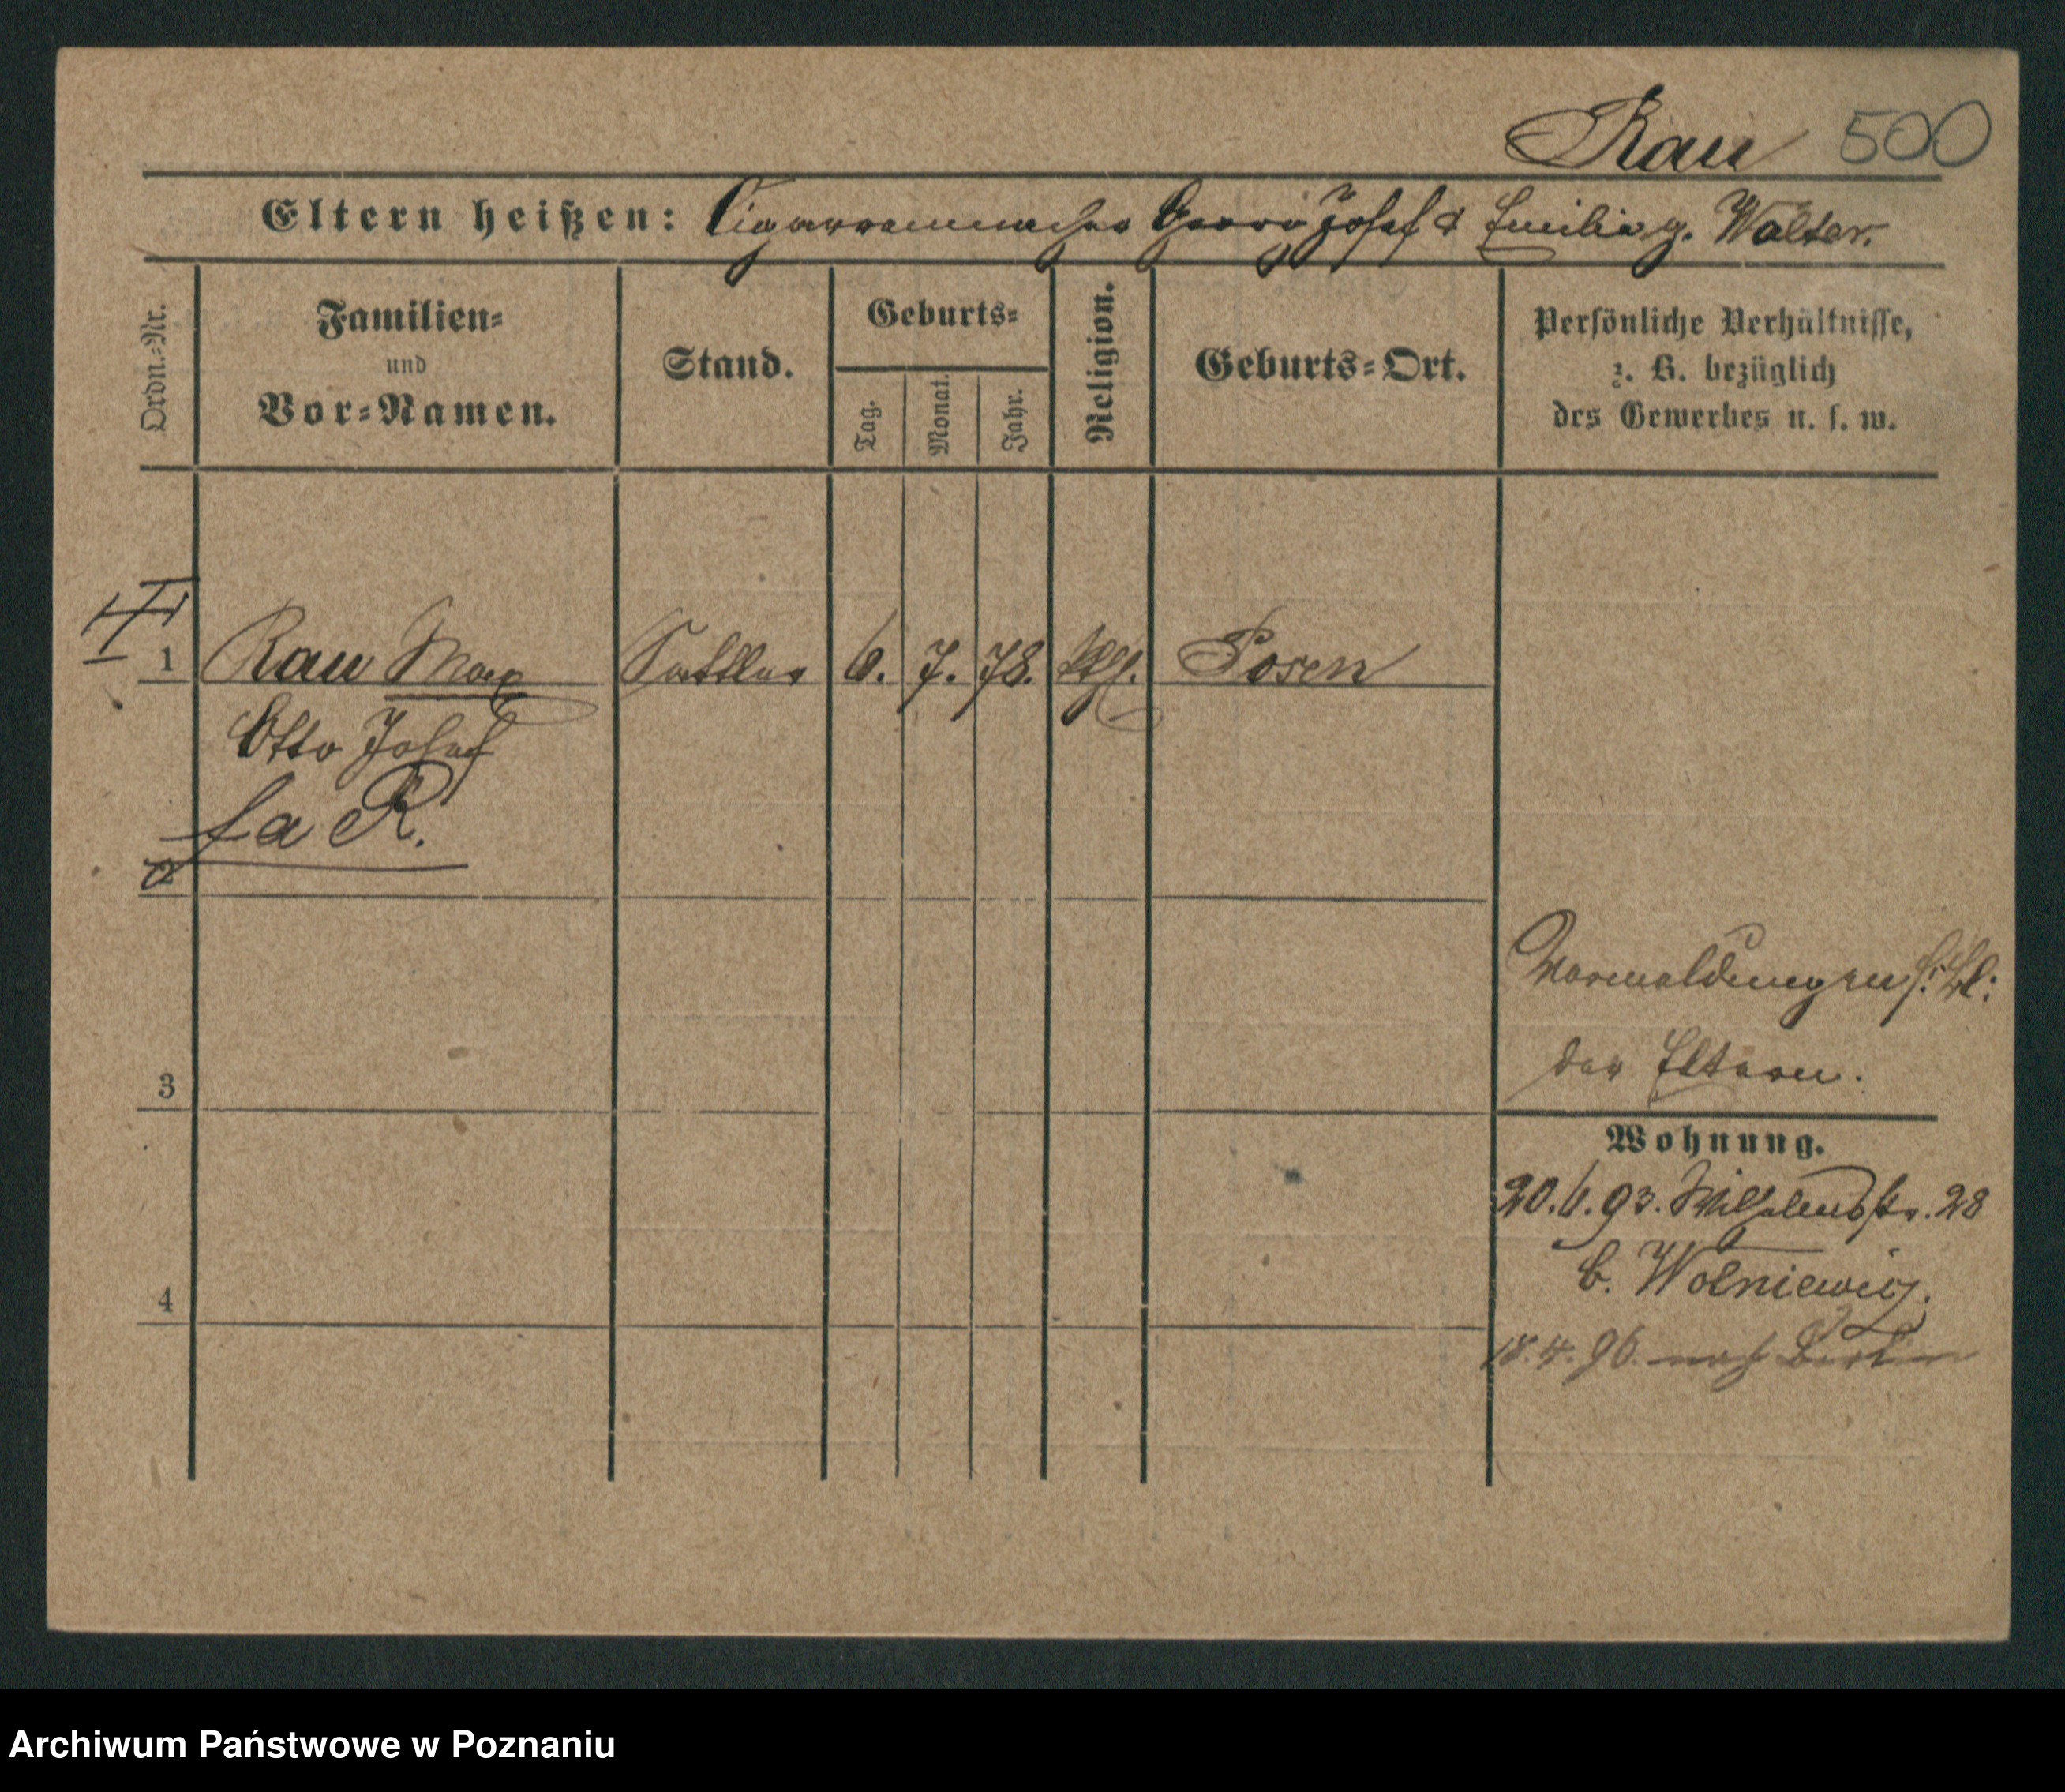 Rau 500
Eltern heißen: Cigarrenmacher Georg Josef & Emilie g. Walter.
Ordn.-Nr.
Familien-
und
Vor-Namen.
Stand.
Geburts-
Tag.
Monat.
Jahr.
Religion.
Geburts-Ort.
Persönliche Verhältnisse,
z. B. bezüglich
des Gewerbes u. s. w.
1 Rau Max Sattler 6. 7. 78. Posen
Otto Josef
R.
2
Vormeldungen s: Bl:
der Eltern.
3
Wohnung.
20.6.93. Wilhelmstr. 28
b. Wolniewicz.
4
18.4.96. nach Berlin
Archiwum Państwowe w Poznaniu